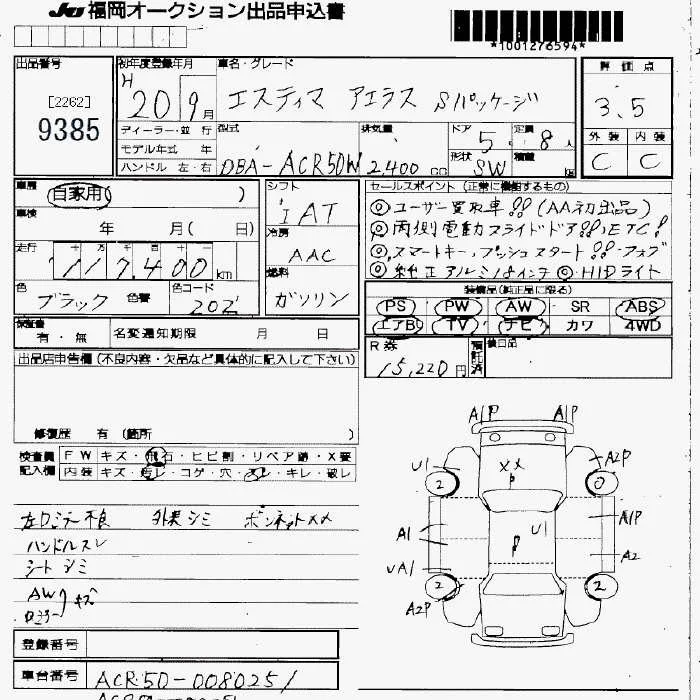 JU 福岡オークション出品申込書
*1001276594*
出品番号
[2262]
9385
初年度登録年月
H 20 9月
車名・グレード
エスティマ アエラス Sパッケージ
評価点
3.5
外装 内装
C C
ディーラー・並行
モデル年式 年
ハンドル 左・右
型式
DBA-ACR50W
排気量
2,400 cc
ドア
5
形状
SW
定員
8人
積載
kg
車歴
自家用( )
車検
年 月( 日)
走行
十 万 千 百 十 一
117,400 km
色
ブラック
色替
色コード
202
シフト
IAT
冷房
AAC
燃料
ガソリン
セールスポイント (正常に機能するもの)
◎ユーザー買取車!!(AA初出品)
◎両側電動スライドドア!!,ETC!
◎スマートキー,プッシュスタート!!・フォグ
◎純正アルミ18インチ ◎HIDライト
装備品(純正品に限る)
PS PW AW SR ABS
エアB TV ナビ カワ 4WD
R券
15,220円
預託済
後日品
保証書
有・無
名変通知期限 月 日
出品店申告欄(不良内容・欠品など具体的に記入して下さい)
修復歴 有 (箇所 )
検査員
記入欄
FW キズ・飛石・ヒビ割・リペア跡・X要
内装 キズ・汚レ・コゲ・穴・スレ・キレ・破レ
左ロミラー不良 外装シミ ボンネットスメ
ハンドルスレ
シートシミ
AW
ロミラー キズ
A1P A1P
U1 XX A2P
2 0
U1 A1P
A1 P A2
UA1
2 2
A2P
登録番号
車台番号
ACR50-0080251